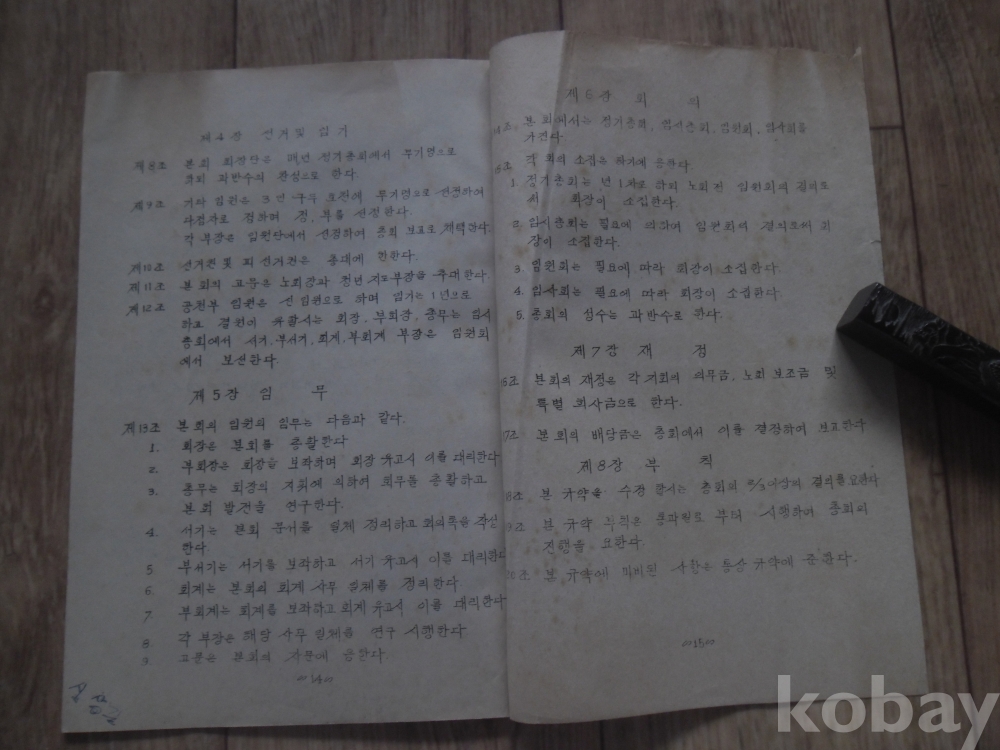 제4장 선거및 임기
제8조 본회 회장단은 매년 정기총회에서 무기명으로
과반수의 찬성으로 한다.
제9조 기타 임원은 3인 구두 호천에 무기명으로 선정하여
다점자로 정하며 정, 부를 선정한다.
각 부장은 임원단에서 선정하여 총회 보고로 채택한다.
제10조 선거권및 피선거권은 총대에 한한다.
제11조 본회의 고문은 노회장과 청년 지도부장을 추대한다.
제12조 공천부 임원은 신임원으로 하며 임기는 1년으로
하고 결원이 유할시는 회장, 부회장, 총무는 임시
총회에서 서기, 부서기, 회계, 부회계 부장은 임원회
에서 보선한다.
제5장 임 무
제13조 본회의 임원의 임무는 다음과 같다.
1. 회장은 본회를 총활한다
2. 부회장은 회장을 보좌하며 회장 유고시 이를 대리한다
3. 총무는 회장의 지휘에 의하여 회무를 총활하고
본회 발전을 연구한다.
4. 서기는 본회 문서를 일체 정리하고 회의록을 작성
한다.
5. 부서기는 서기를 보좌하고 서기 유고시 이를 대리한다
6. 회계는 본회의 회계 사무 일체를 정리한다
7. 부회계는 회계를 보좌하고 회계 유고시 이를 대리한다
8. 각 부장은 해당 사무 일체를 연구 시행한다
9. 고문은 본회의 자문에 응한다.
∞14∞
제6장 회 의
14조 본회에서는 정기총회, 임시총회, 임원회, 임사회를
가진다.
15조 각 회의 소집은 하기에 응한다.
1. 정기총회는 년 1차로 하되 노회전 임원회의 결의로
서 회장이 소집한다.
2. 임시총회는 필요에 따라 임원회의 결의로써 회
장이 소집한다.
3. 임원회는 필요에 따라 회장이 소집한다.
4. 임사회는 필요에 따라 회장이 소집한다.
5. 총회의 성수는 과반수로 한다.
제7장 재 정
16조 본회의 재정은 각 지회의 의무금, 노회 보조금 및
특별 회사금으로 한다.
17조 본회의 배당금은 총회에서 이를 결정하여 보고한다
제8장 부 칙
18조 본 규약을 수정 할시는 총회의 2/3이상의 결의를 요한다
19조 본 규약 부칙은 통과일로 부터 시행하며 총회의
진행을 요한다.
20조 본 규약에 미비된 사항은 통상 규약에 준한다.
∞15∞
kobay